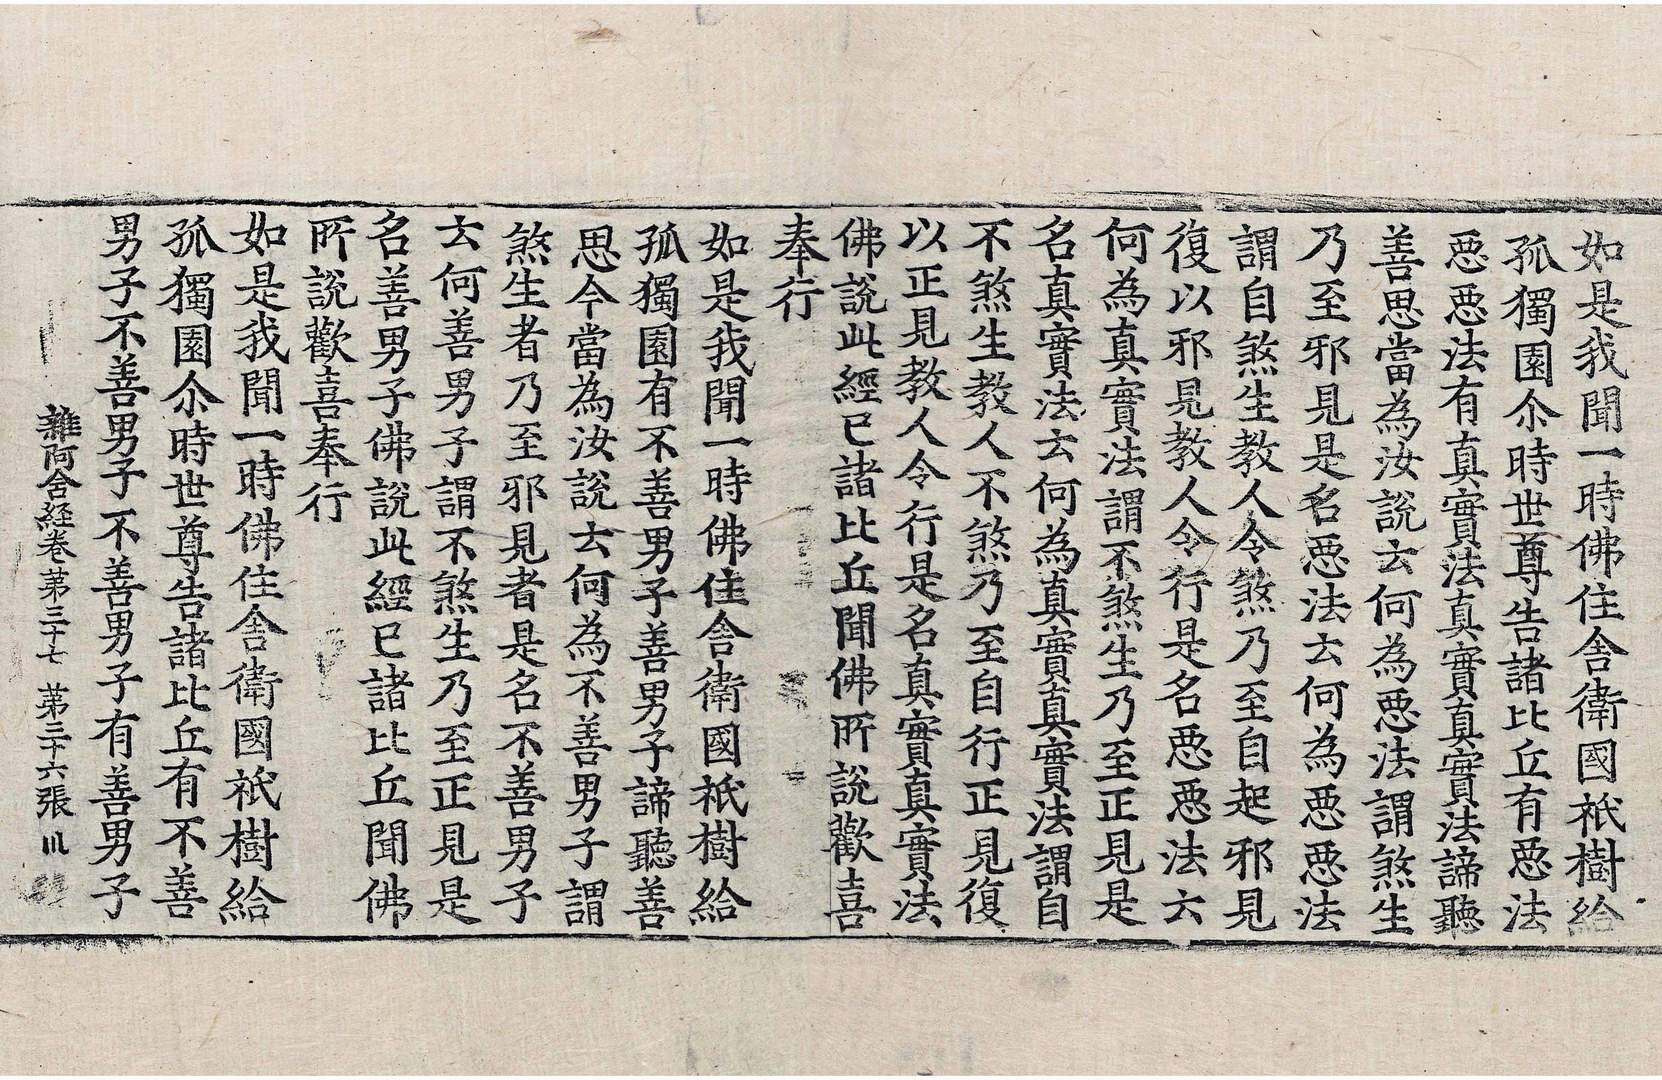 如是我聞一時佛住舍衛國祇樹給
孤獨園尒時世尊告諸比丘有惡法
惡惡法有真實法真實真實法諦聽
善思當為汝說云何為惡法謂煞生
乃至邪見是名惡法云何為惡惡法
謂自煞生教人令煞乃至自起邪見
復以邪見教人令行是名惡惡法云
何為真實法謂不煞生乃至正見是
名真實法云何為真實真實法謂自
不煞生教人不煞乃至自行正見復
以正見教人令行是名真實真實法
佛說此經已諸比丘聞佛所說歡喜
奉行
如是我聞一時佛住舍衛國祇樹給
孤獨園有不善男子善男子諦聽善
思今當為汝說云何為不善男子謂
煞生者乃至邪見者是名不善男子
云何善男子謂不煞生乃至正見是
名善男子佛說此經已諸比丘聞佛
所說歡喜奉行
如是我聞一時佛住舍衛國祇樹給
孤獨園尒時世尊告諸比丘有不善
男子不善男子不善男子有善男子
雜阿含経卷第三十七 第三十六張 川